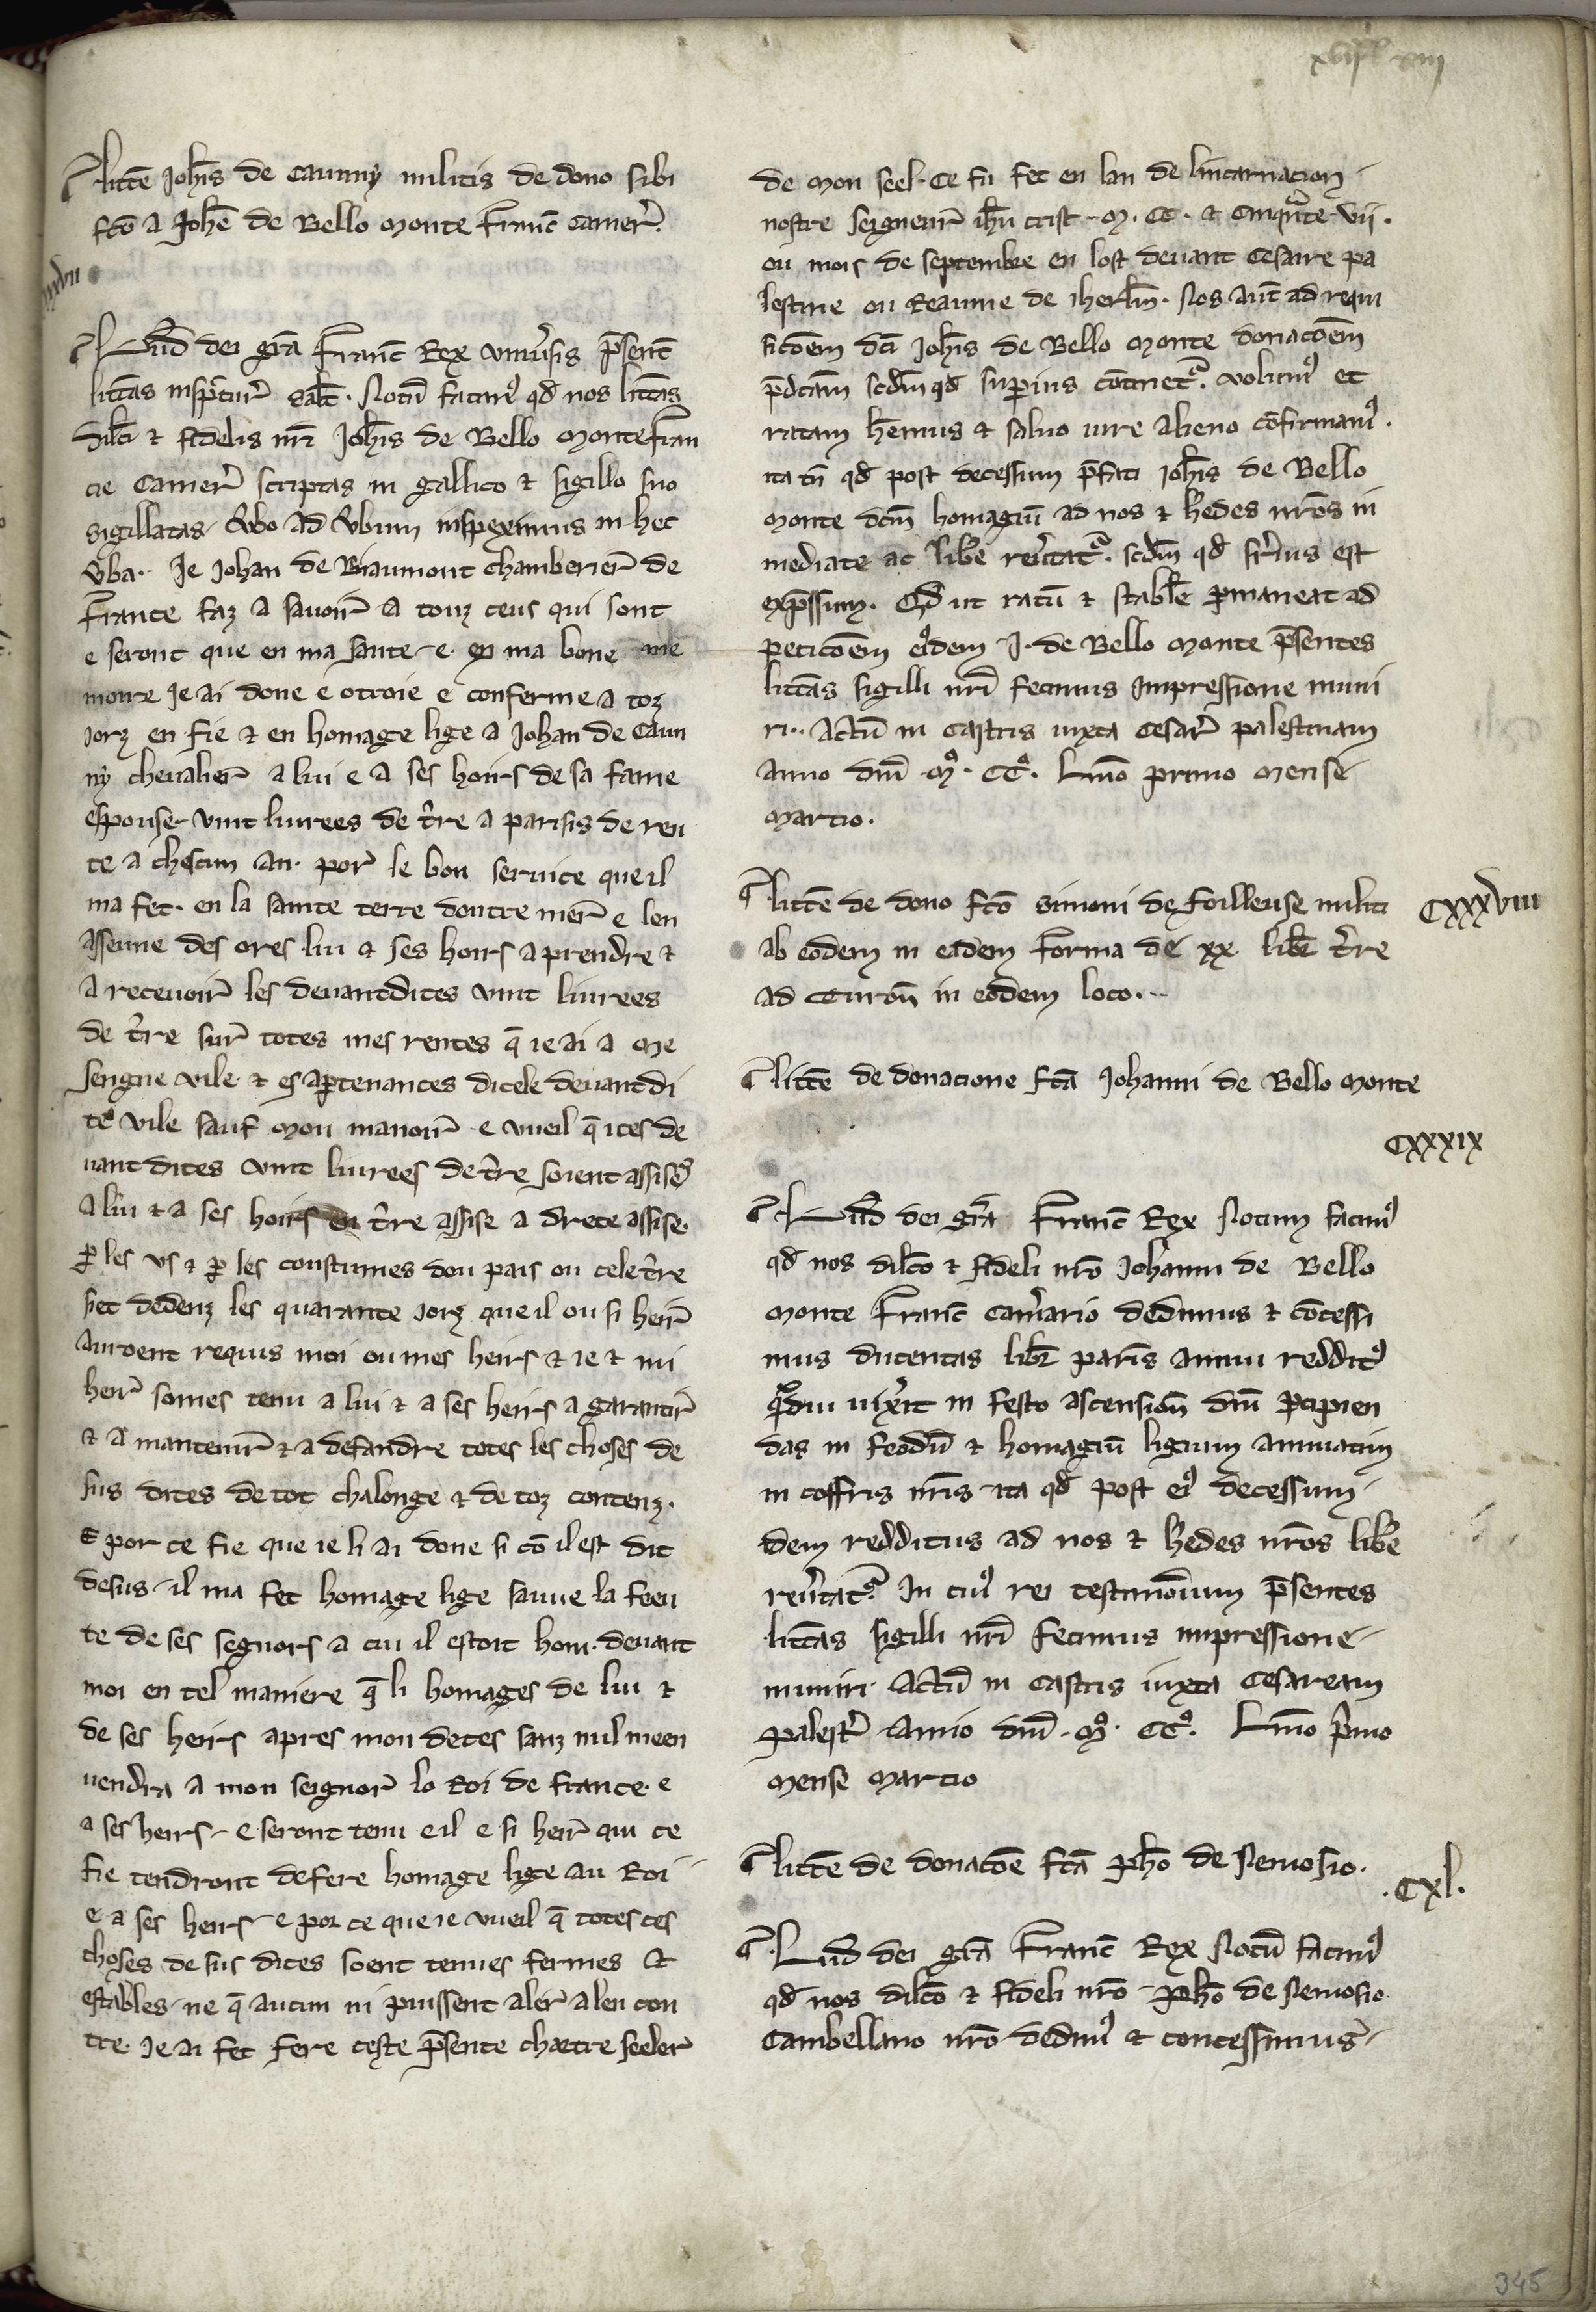 ¶ Litt̄e Joh̄is de Caunny militis de dono sibi
fc̄o a Joh̄e de Bello Monte Franc̄ camer̄.
¶ Lud̄ dei gr̄a Franc̄ Rex univ̄sis p̄sent̄
litt̄as insp̄ctur̄ salt̄. Notū facim9 qd̄ nos litt̄as
dilc̄i ⁊ fidelis nr̄i Joh̄is de Bello Monte Fran
cie Camer̄ scriptas in gallico ⁊ sigillo suo
sigillatas v̄bo ad v̄bum inspeximus in hec
v̄ba. Je Johan de Biaumont chamberier̄ de
France faz a savoir̄ a touz ceus qui sont
e seront que en ma sante e en ma bone me
moire Je ai done e otroie e conferme a toz
jorz en fie ⁊ en homage lige a Johan de Caun
ny chevalier̄ a lui e a ses hoirs de sa fame
espouse vint livrees de t̄re a parisis de ren
te a chescun an. por̄ le bon service que il
ma fet. en la sainte terre doutre mer̄ e len
assenne des ores lui ⁊ ses hoirs a prendre ⁊
a recevoir̄ les devantdites vint livrees
de t̄re sur̄ totes mes rentes q̄ ie ai a Me
sengue vile ⁊ es ap̄tenances dicele devantdi
te vile sauf mon manoir̄ e vueil q̄ ices de
vant dites vint livrees de t̄re soient assises
a lui ⁊ a ses hoirs en t̄re assise a drete assise.
p̄ les us ⁊ p̄ les coustumes dou pais ou cele t̄re
siet dedenz les quarante jorz que il ou si heir̄
auroent requis moi ou mes heirs ⁊ ie ⁊ mi
heir̄ somes tenu a lui ⁊ a ses heirs a garantir̄
⁊ a mantenir̄ ⁊ a defandre totes les choses de
sus dites de tot chalonge ⁊ de toz contenz.
E por ce fie que ie li ai done si cō il est dit
desus il ma fet homage lige sauve la feeu
te de ses segnors a cui il estoit hom. devant
moi en tel maniere q̄ li homages de lui ⁊
de ses heirs apres mon deces sanz nul meen
vendra a mon seignor̄ lo Roi de France. e
a ses heirs e seront tenu e il e si heir̄ qui ce
fie tendront de fere homage lige au Roi
e a ses heirs e por ce que ie vueil q̄ totes ces
choses de sus dites soent tenues fermes ⁊
estables ne q̄ aucun ni puissent aler̄ alencon
tre. Je ai fet fere ceste p̄sente chartre seeler̄
de mon seel. Ce fu fet en lan de lincarnacion
nostre seigneur̄ ih̄u crist. M. CC. ⁊ cinqu̾nte vii.
ou mois de septembre en lost devant Cesaire pa
lestine ou Reaume de iherl̄m. Nos aut̄ ad requi
sicōem dc̄i Joh̄is de Bello Monte donacōem
p̄dcam̄ scdm̄ qd̄ superius cōtinet̾. volum9 et
ratam hēmus ⁊ salvo iure alieno cōfirmam9.
ita tn̄ qd̄ post decessum p̄fati Joh̄is de Bello
Monte dcm̄ homagiū ad nos ⁊ h̄edes nr̄os in
mediate ac lib̄e rev̄tat̾. scdm̄ qd̄ sup̄ius est
exp̄ssum. Qd̄ ut ratū ⁊ stabl̄e p̄maneat ad
peticōem ei9dem J. de Bello Monte p̄sentes
litt̄as sigilli nr̄i fecimus impressione muni
ri. Actū in castris iuxta Cesar̄ palestinam
anno dn̄i. M̊. CC̊. Lmō primo mense
Marcio.
¶ Litt̄e de dono fc̄o Simoni de Foilleuse militi
ab eodem in eadem forma de xx. lib̄ t̄re
ad Turon̄ in eodem loco.
CXXXVIII
¶ Litt̄e de donacione fc̄a Johanni de Bello Monte
CXXXIX
¶ Lud̄ dei gr̄a Franc̄ Rex Notum facim9
qd̄ nos dilc̄o ⁊ fideli nr̄o Johanni de Bello
Monte Franc̄ Cam̄ario dedimus ⁊ cōcessi
mus ducentas libr̄ paris̄ annui reddit9
q̊diu vix̄it in festo ascension̄ dn̄i p̄cipien
das in feodū ⁊ homagiū ligium annuatim
in coffris nr̄is ita qd̄ post ei9 decessum
idem redditus ad nos ⁊ h̄edes nr̄os lib̄e
rev̄tat̾. In cui9 rei testimōium p̄sentes
litt̄as sigilli nr̄i fecimus impressione
muniri. Actū in Castris iuxta Cesaream
palest̄ Anno dn̄i. M̊. CC̊. Lmō p̄mo
mense Marcio
¶ Litt̄e de donacōe fc̄a Ph̄o de Nemosio.
.CXL.
¶ Lud̄ dei gr̄a Franc̄ Rex Notū facim9
qd̄ nos dilc̄o ⁊ fideli nr̄o Ph̄o de Nemosio
Cambellano nr̄o dedim9 ⁊ concessimus
345